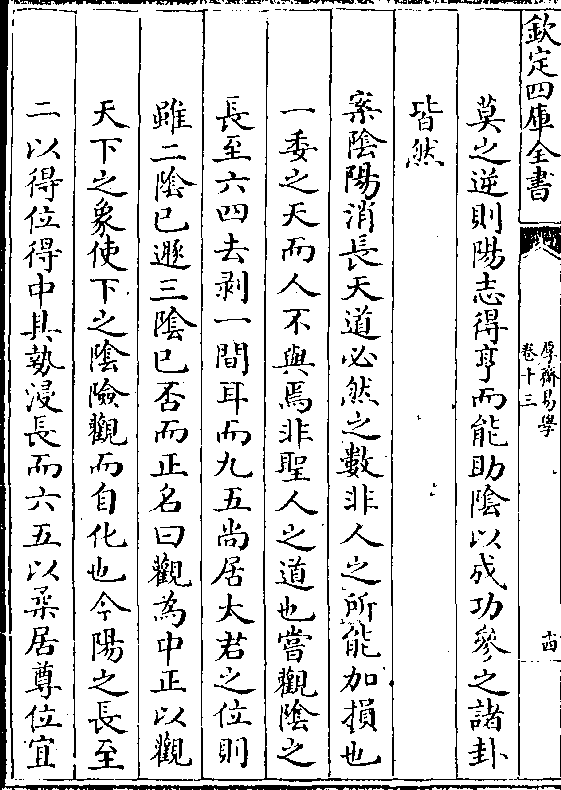 欽定四庫全書
厚齋易學
卷十三
十四
莫之逆則陽志得亨而能助陰以成功參之諸卦
皆然
案陰陽消長天道必然之數非人之所能加損也
一委之天而人不與焉非聖人之道也嘗觀陰之
長至六四去剥一間耳而九五尚居大君之位則
雖二陰已遯三陰已否而正名曰觀為中正以觀
天下之象使下之陰險觀而自化也今陽之長至
二以得位得中其勢浸長而六五以柔居尊位宜